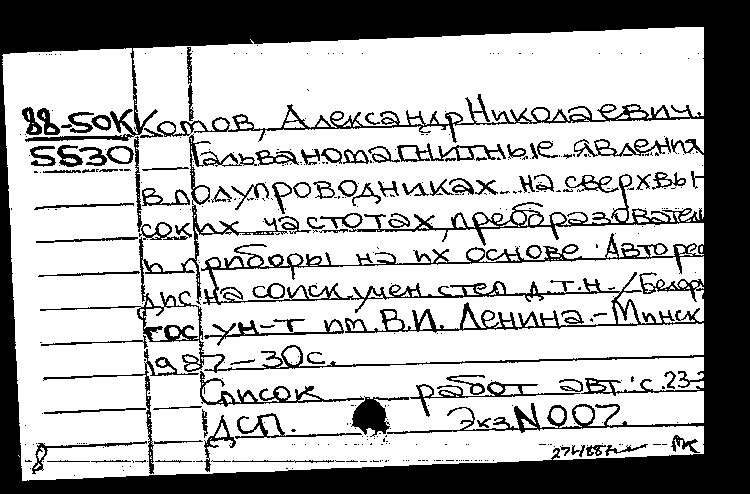 88-50К Котов, Александр Николаевич.
5530 Гальваномагнитные явления
в полупроводниках на сверхвы
соких частотах, преобразовател
и приборы на их основе: Авторе
дис. на соиск. учен. степ д.т.н. /Белор
гос. ун-т им. В.И. Ленина.-Минск
1987-30с.
Список работ авт.: с. 23-
ДСП. Экз N 007.
8